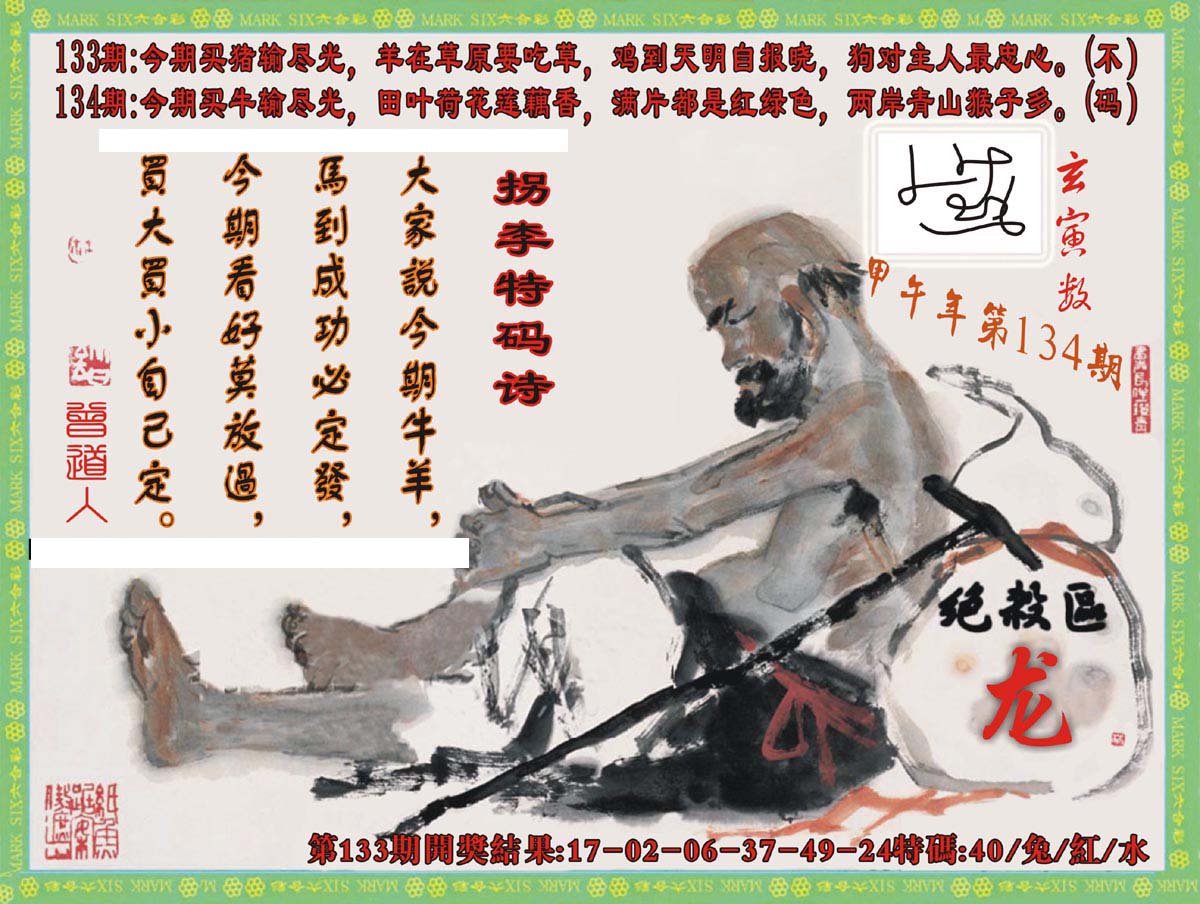 MARK SIX六合彩
133期:今期买猪输尽光，羊在草原要吃草，鸡到天明自报晓，狗对主人最忠心。(不)
134期:今期买牛输尽光，田叶荷花莲藕香，满片都是红绿色，两岸青山猴子多。(码)
玄寅数
甲午年第134期
拐李特码诗
大家説今期牛羊，
馬到成功必定發，
今期看好莫放過，
買大買小自己定。
曾道人
绝殺區
龙
第133期開獎結果:17-02-06-37-49-24特碼:40/兔/紅/水